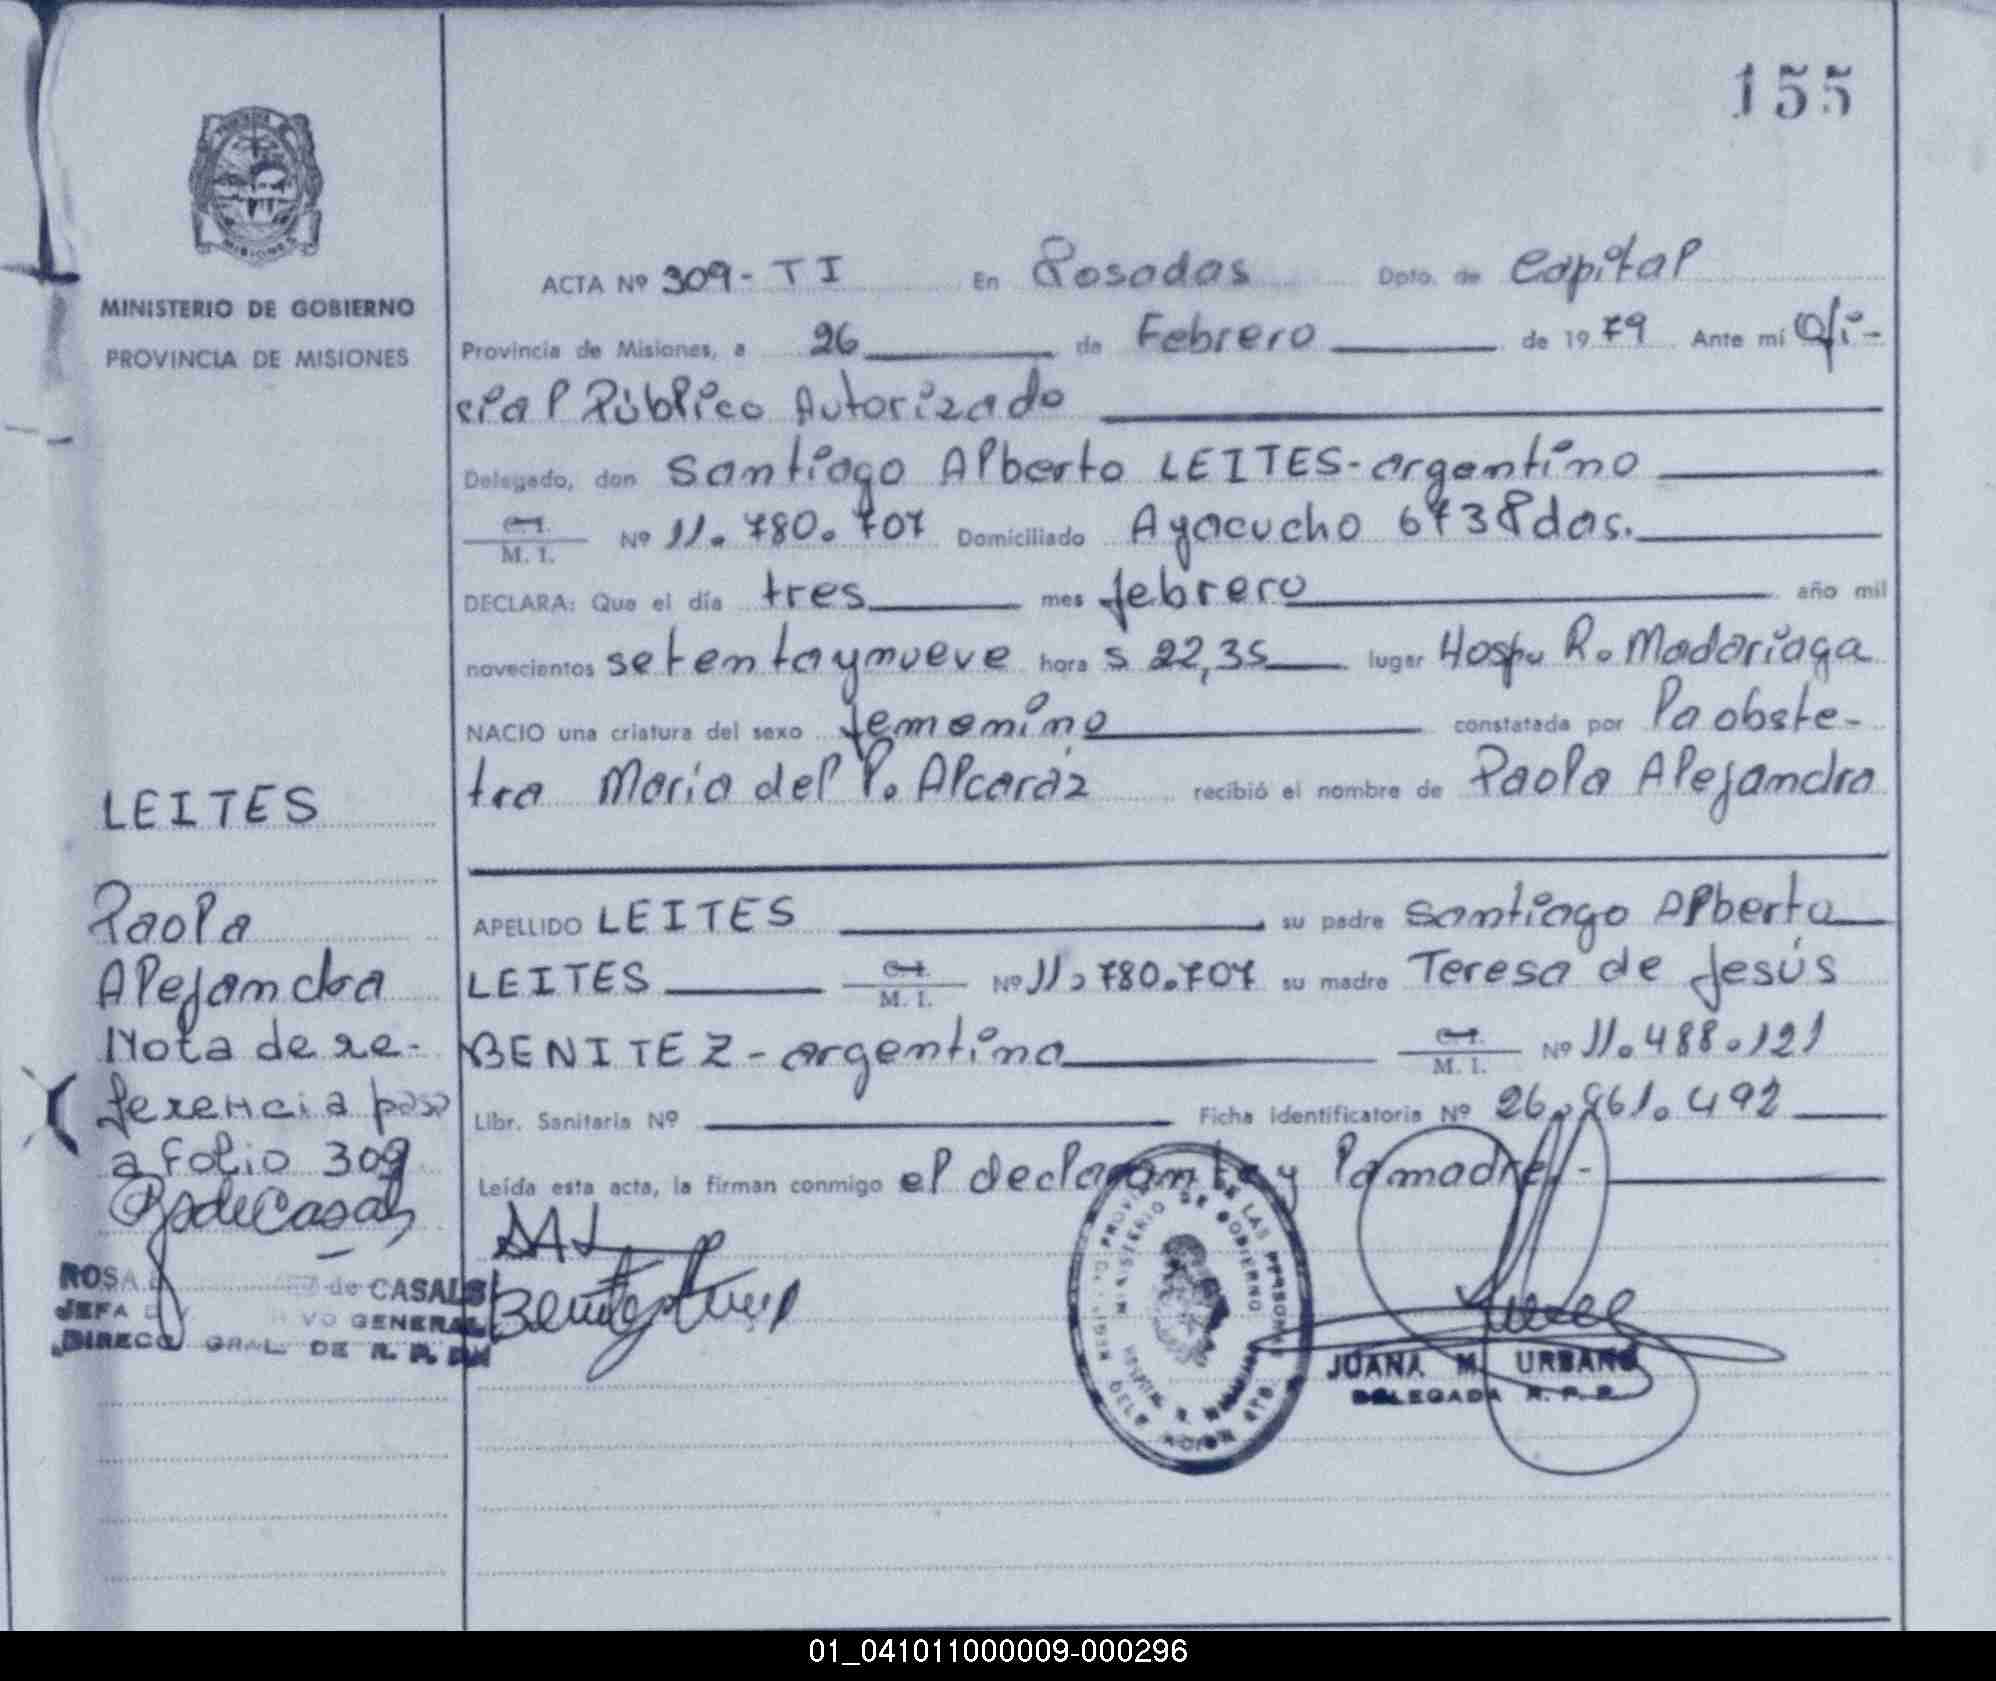 155
MISIONES
MINISTERIO DE GOBIERNO
PROVINCIA DE MISIONES
ACTA Nº 309-TI En Posadas Dpto. de Capital
Provincia de Misiones, a 26 de Febrero de 1979 Ante mí Ofi-
cial Público Autorizado
Delegado, don Santiago Alberto LEITES-argentino
C.I. M. I. Nº 11.780.707 Domiciliado Ayacucho 673 Pdas.
DECLARA: Que el día tres mes febrero año mil
novecientos setentaynueve hora s 22,35 lugar Hosp. R. Madariaga
NACIO una criatura del sexo femenino constatada por la obste-
tra María del P. Alcaráz recibió el nombre de Paola Alejandra
APELLIDO LEITES su padre Santiago Alberto
LEITES C.I. M. I. Nº 11.780.707 su madre Teresa de Jesús
BENITEZ-argentina C.I. M. I. Nº 11.488.121
Libr. Sanitaria Nº Ficha Identificatoria Nº 26.961.492
Leída esta acta, la firman conmigo el declarante y la madre.-
LEITES
Paola
Alejandra
Nota de re-
ferencia paso
a Folio 309
RsdeCasals
ROSA de CASALS
JEFA VO GENERAL
DIRECC GRAL. DE R. P.
MINISTERIO DE GOBIERNO
DE LAS PERSONAS
JUANA M. URBANO
DELEGADA R. P. P.
01_041011000009-000296